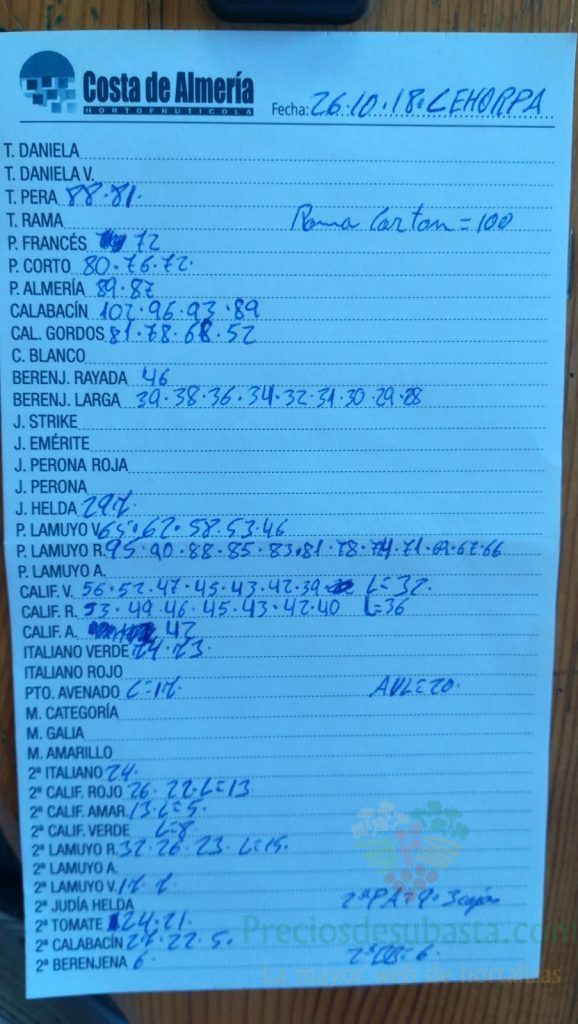 Costa de Almería
HORTOFRUTICOLA
Fecha: 26.10.18. CEHORPA
T. DANIELA
T. DANIELA V.
T. PERA 88.81.
T. RAMA Rama Carton = 100
P. FRANCÉS 72
P. CORTO 80.76.72.
P. ALMERÍA 89.87
CALABACÍN 102.96.93.89
CAL. GORDOS 81.78.68.52
C. BLANCO
BERENJ. RAYADA 46
BERENJ. LARGA 39.38.36.34.32.31.30.29.28
J. STRIKE
J. EMÉRITE
J. PERONA ROJA
J. PERONA
J. HELDA
P. LAMUYO V. 65.62.58.53.46
P. LAMUYO R. 95.90.88.85.83.81.78.74.71.69.67.66
P. LAMUYO A.
CALIF. V. 56.52.47.45.43.42.39 L=32.
CALIF. R. 53.49.46.45.43.42.40 L=36
CALIF. A. 42
ITALIANO VERDE 74.73.
ITALIANO ROJO
PTO. AVENADO
M. CATEGORÍA
M. GALIA
M. AMARILLO
2ª ITALIANO 24.
2ª CALIF. ROJO 26. 22. L=13
2ª CALIF. AMAR. 13. L=5.
2ª CALIF. VERDE L=8
2ª LAMUYO R. 32.26.23. L=15.
2ª LAMUYO A.
2ª LAMUYO V.
2ª JUDÍA HELDA
2ª TOMATE 24.21.
Preciosdesubasta.com
2ª CALABACÍN 22.5.
2ª BERENJENA 6.
La mayor web de hortalizas